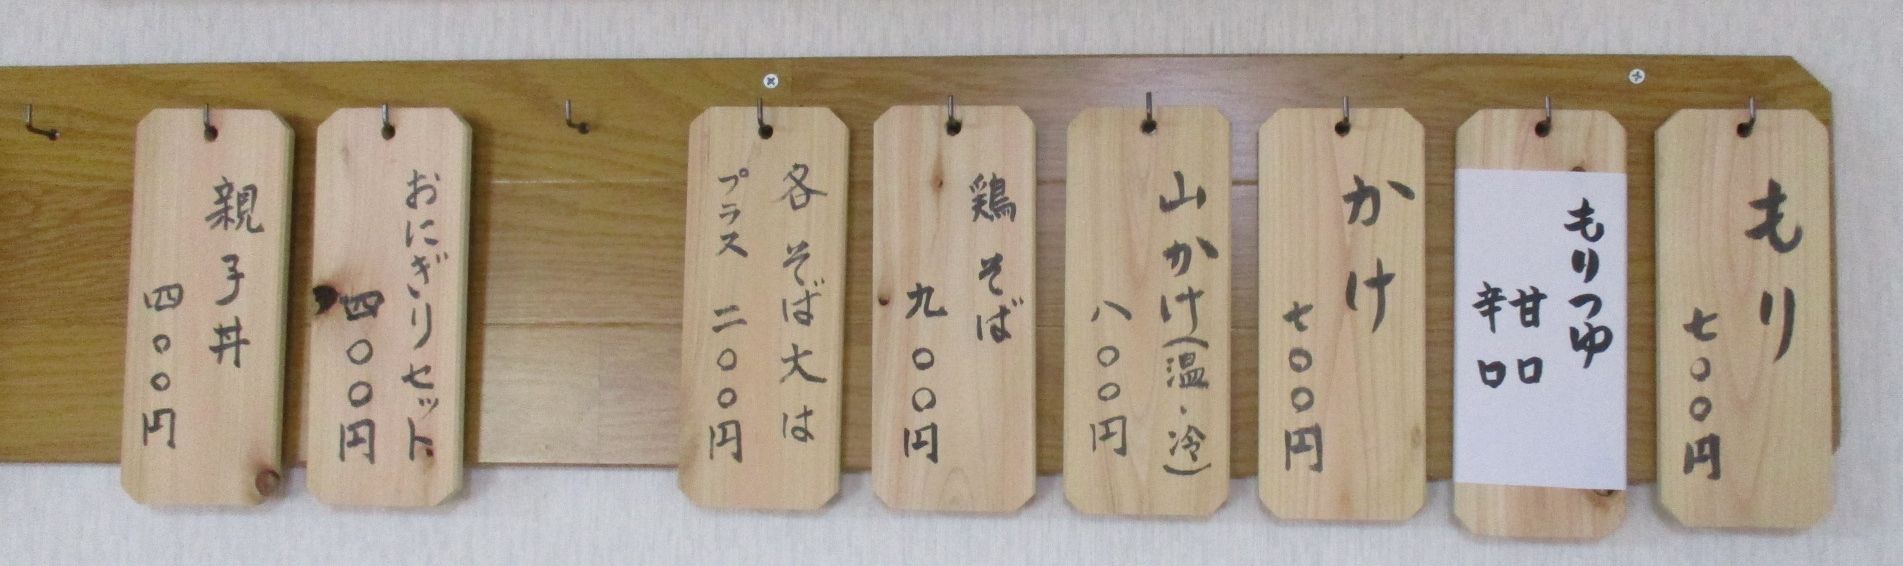 もり
七〇〇円
もりつゆ
甘口
辛口
かけ
七〇〇円
山かけ(温・冷)
八〇〇円
鶏そば
九〇〇円
各そば大は
プラス 二〇〇円
おにぎりセット
四〇〇円
親子丼
四〇〇円